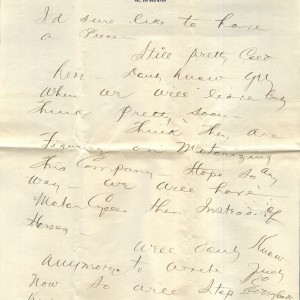 I'd sure like to have
a Piece.
Still pretty Cold
here - Dont know yet
When we will leave
think pretty soon -
think they are
Figuring on Motorizing
this Company - Hope so Any
way - we will have
Motor Cycles then Instead of
Horses -
Well dont Know
Anymore to write Just
Now so will Stop